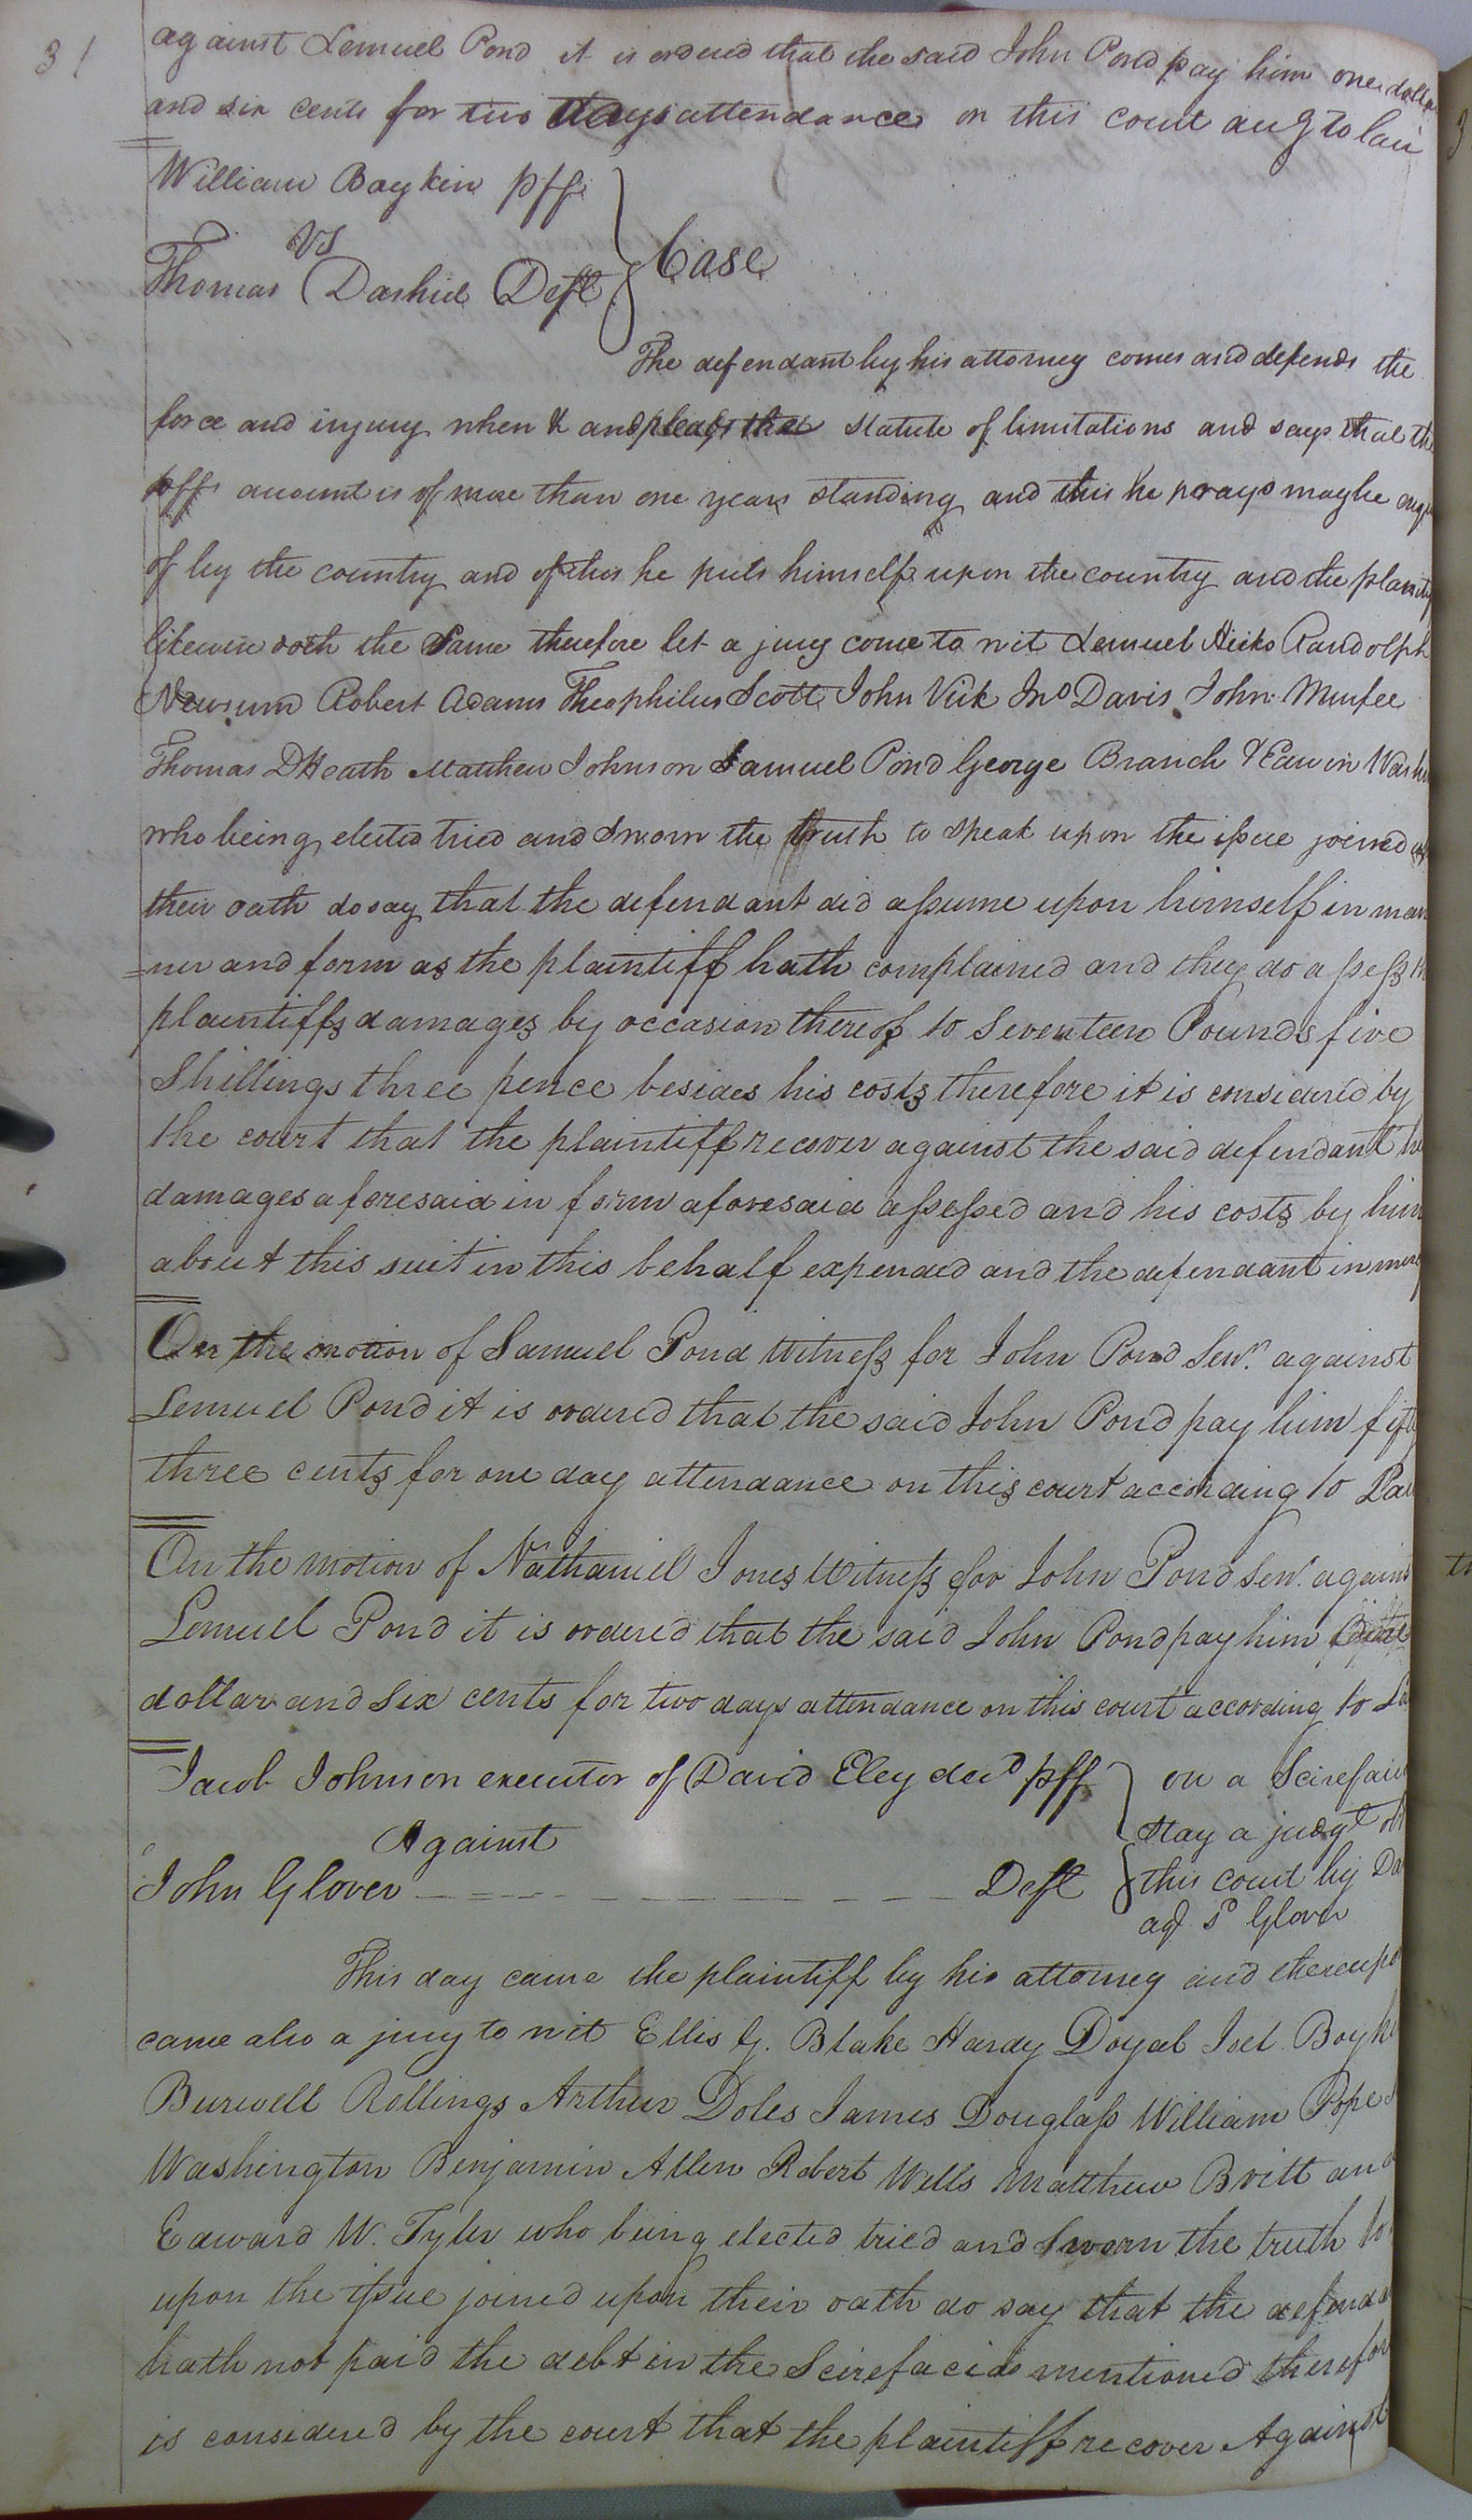 31
against Lemuel Pond it is ordered that the said John Pond pay him one dollar
and six cents for two days attendance on this court accg to law
William Baykin pff
vs
Thomas Dashiel Deft
Case
The defendant by his attorney comes and defends the
force and injury when & and pleads the statute of limitations and says that the
pffs account is of more than one years standing and this he prays may be enqu
of by the country and of this he puts himself upon the country and the plaintiff
likewise doth the same therefore let a jury come to wit Lemuel Hicks Randolph
Newsum Robert Adams Theophilus Scott John Vick Jno Davis John Murfee
Thomas D Heath Matthew Johnson Samuel Pond George Branch & Edwin Washi
who being elected tried and sworn the truth to speak upon the issue joined
their oath do say that the defendant did assume upon himself in man
=ner and form as the plaintiff hath complained and they do assess th
plaintiffs damages by occasion thereof to Seventeen Pounds five
Shillings three pence besides his costs therefore it is considered by
the court that the plaintiff recover against the said defendant the
damages aforesaid in form aforesaid assessed and his costs by him
about this suit in this behalf expended and the defendant in mercy
On the motion of Samuel Pond Witness for John Pond Senr. against
Lemuel Pond it is ordered that the said John Pond pay him fifty
three cents for one day attendance on this court according to Law
On the motion of Nathaniel Jones Witness for John Pond Senr. against
Lemuel Pond it is ordered that the said John Pond pay him
dollar and six cents for two days attendance on this court according to La
Jacob Johnson executor of David Eley decd pff
Against
John Glover - - - - - - - Deft
on a Scirefacias
stay a judgt ob
this court by Da
agt sd Glover
This day came the plaintiff by his attorney and thereupon
came also a jury to wit Ellis G. Blake Hardy Doyal Joel Boyki
Burwell Rollings Arthur Doles James Douglass William Pope
Washington Benjamin Allen Robert Wells Matthew Britt and
Edward W. Tyler who being elected tried and sworn the truth to
upon the issue joined upon their oath do say that the defenda
hath not paid the debt in the Scirefacias mentioned therefor
is considered by the court that the plaintiff recover Against